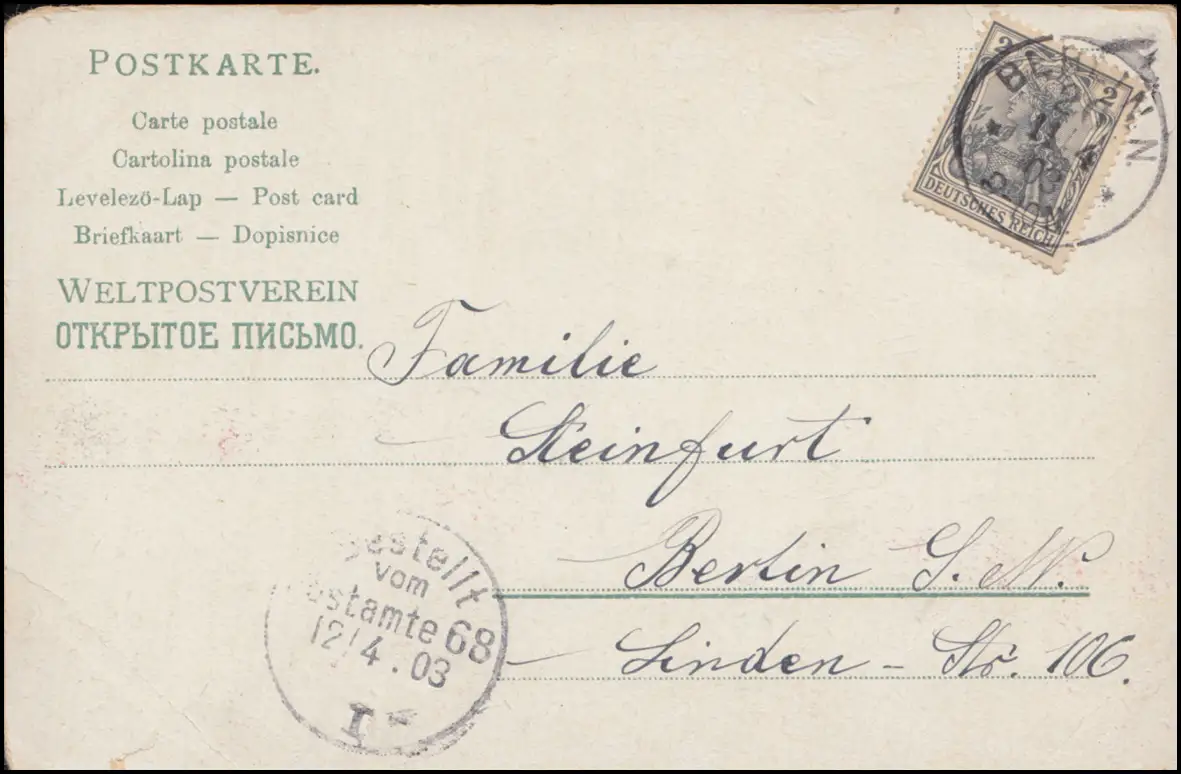 POSTKARTE.
Carte postale
Cartolina postale
Levelezö-Lap — Post card
Briefkaart — Dopisnice
WELTPOSTVEREIN
ОТКРЫТОЕ ПИСЬМО.
2 2
DEUTSCHES REICH
BERLIN N.
11 4
03
Familie
Steinfurt
Berlin S. W.
Linden - Str. 106.
Bestellt
vom
Postamte 68
12/4.03
I *